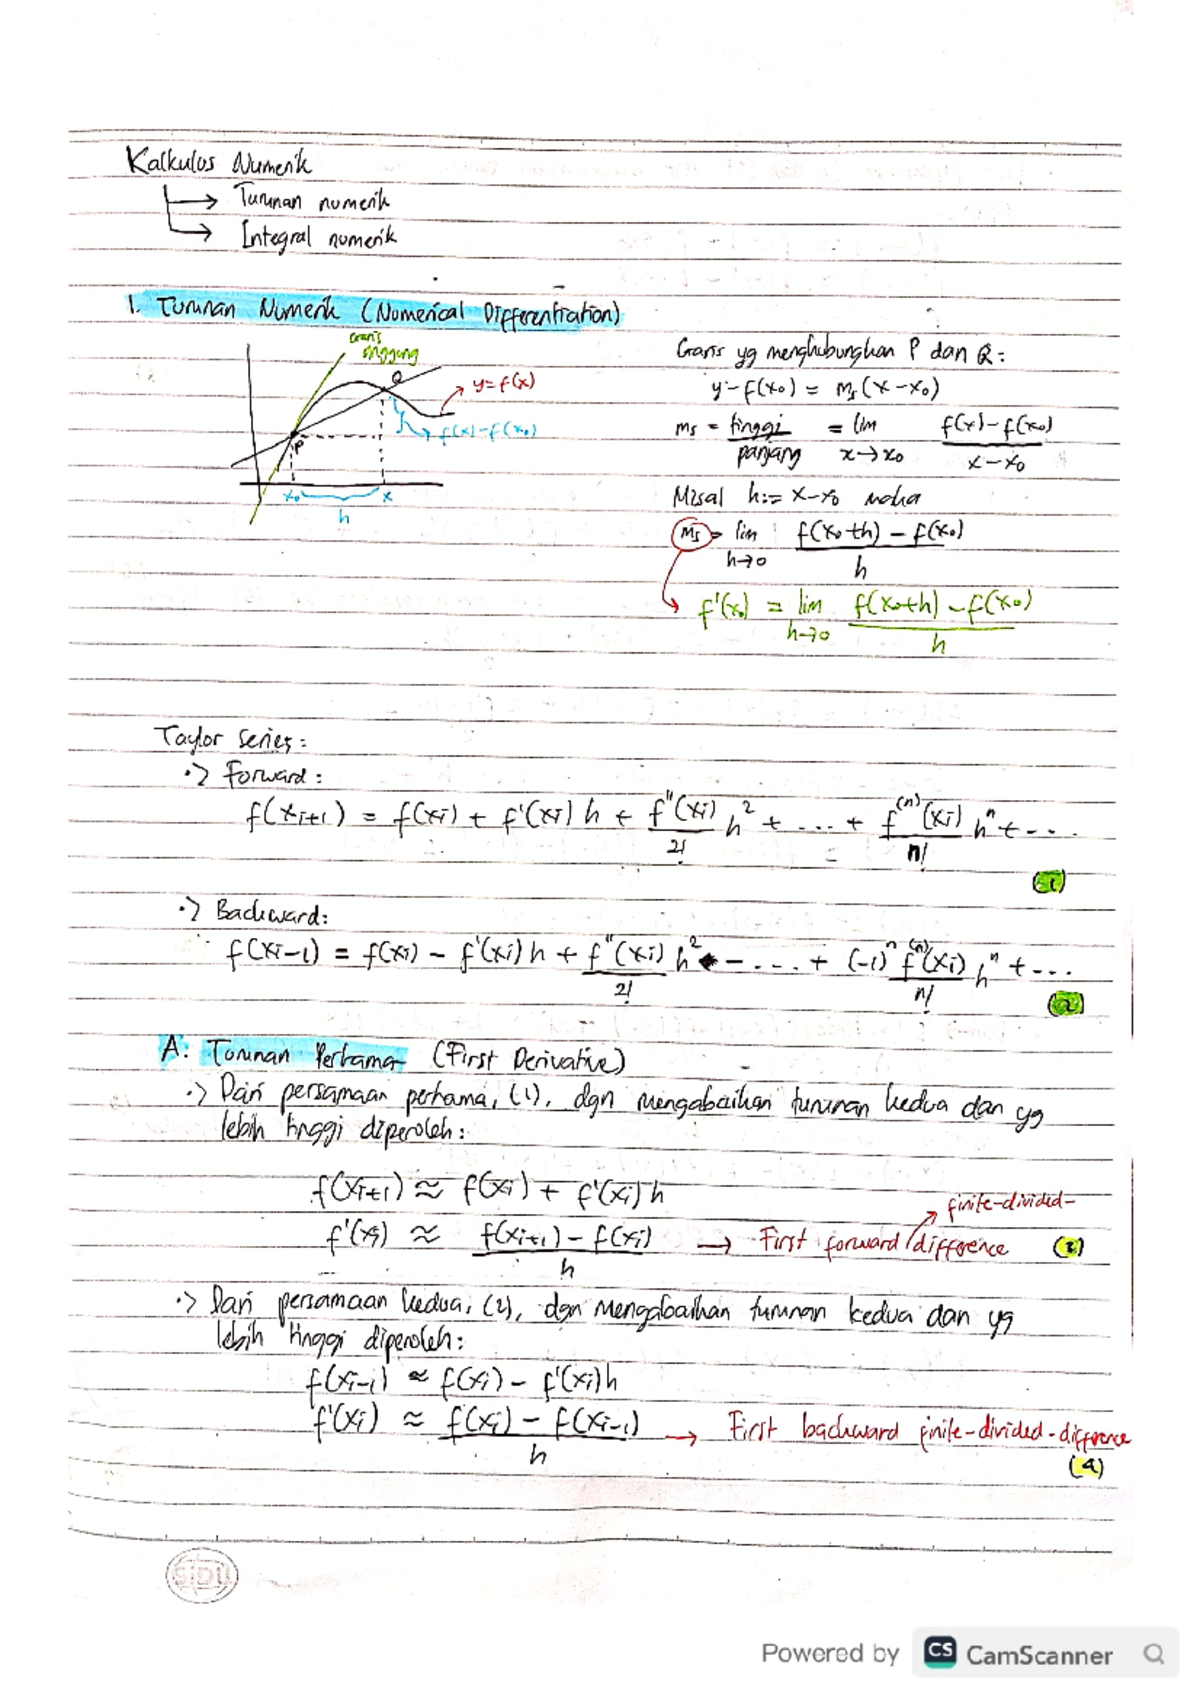 Kalkulus Numerik
→ Turunan numerik
→ Integral numerik
1. Turunan Numerik (Numerical Differentiation)
Garis singgung
Q
y=f(x)
f(x)-f(x₀)
P
x₀ x
h
Garis yg menghubungkan P dan Q:
y-f(x₀) = Ms(x-x₀)
ms = tinggi/panjang = lim x→x₀ (f(x)-f(x₀))/(x-x₀)
Misal h:= x-x₀ maka
Ms = lim h→0 (f(x₀+h) - f(x₀))/h
→ f'(x₀) = lim h→0 (f(x₀+h) - f(x₀))/h
Taylor Series:
·> Forward:
f(xi+1) = f(xi) + f'(xi) h + f''(xi)/2! h² + .... + f⁽ⁿ⁾(xi)/n! hⁿ + ...
(1)
·> Backward:
f(xi-1) = f(xi) - f'(xi) h + f''(xi)/2! h² - .... + (-1)ⁿ f⁽ⁿ⁾(xi)/n! hⁿ + ...
(2)
A. Turunan Pertama (First Derivative)
·> Dari persamaan pertama, (1), dgn mengabaikan turunan kedua dan yg
lebih tinggi diperoleh:
f(xi+1) ≈ f(xi) + f'(xi) h
f'(xi) ≈ (f(xi+1) - f(xi))/h → First forward difference (3)
finite-divided-
·> Dari persamaan kedua, (2), dgn mengabaikan turunan kedua dan yg
lebih tinggi diperoleh:
f(xi-1) ≈ f(xi) - f'(xi)h
f'(xi) ≈ (f(xi) - f(xi-1))/h → First backward finite-divided-difference
(4)
SIDU
Powered by CS CamScanner